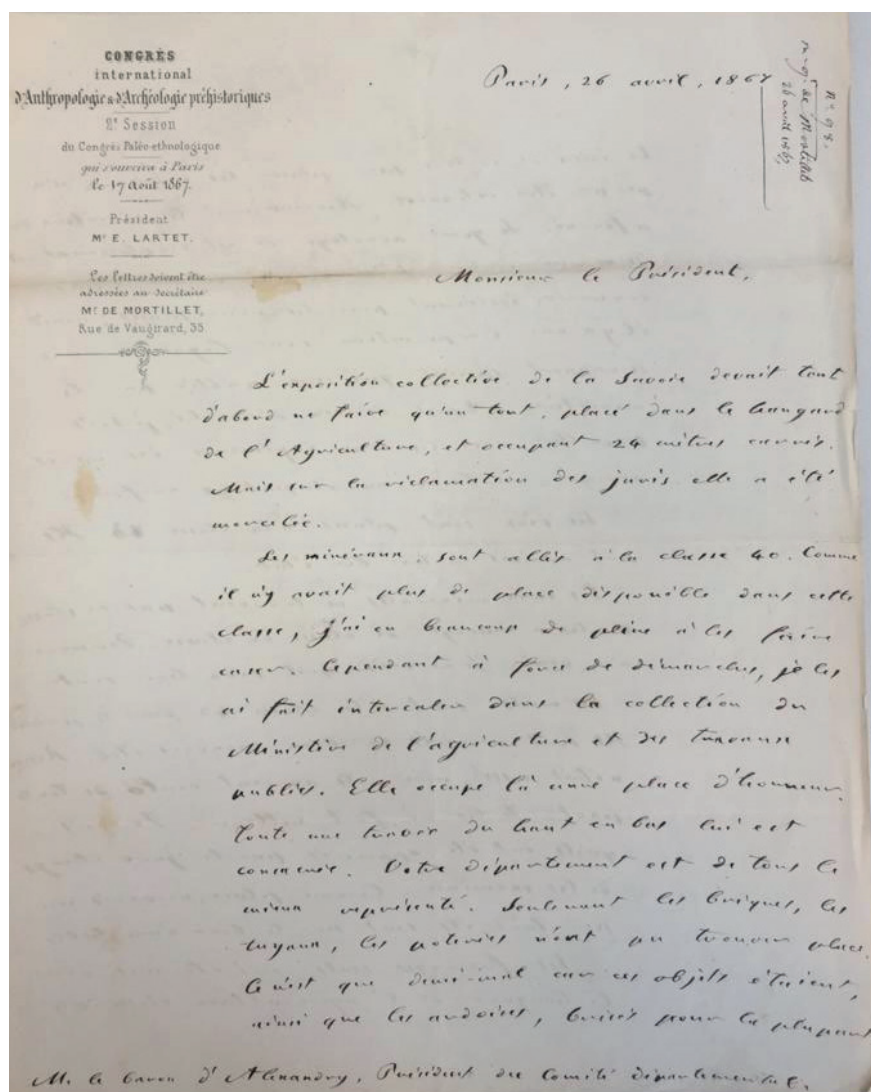 CONGRÈS
international
d'Anthropologie & d'Archéologie préhistoriques
2e Session
du Congrès Paléo-ethnologique
qui s'ouvrira à Paris
le 17 Août 1867.
Président
Mr E. LARTET.
Les lettres doivent être
adressées au Secrétaire
Mr DE MORTILLET,
Rue de Vaugirard, 35.
Paris, 26 avril, 1867
No 98.
de Mortillet
26 avril 1867
Monsieur le Président,
L'exposition collective de la Savoie devait tout
d'abord ne faire qu'un tout, placé dans le hangard
de l'Agriculture, et occupant 24 mètres carrés.
Mais sur la réclamation des jurés elle a été
morcelée.
Les minéraux sont allés à la classe 40. Comme
il n'y avait plus de place disponible dans cette
classe, j'ai eu beaucoup de peine à les faire
caser. Cependant à force de démarches, je les
ai fait intercaler dans la collection du
Ministère de l'agriculture et des travaux
publics. Elle occupe là une place d'honneur.
Toute une travée du haut en bas lui est
consacrée. Votre département est de tous le
mieux représenté. Seulement les briques, les
tuyaux, les poteries n'ont pu trouver place.
Ce n'est que demi-mal car ces objets étaient,
ainsi que les ardoises, brisés pour la plupart
M. le baron d'Alexandry, Président du Comité départemental